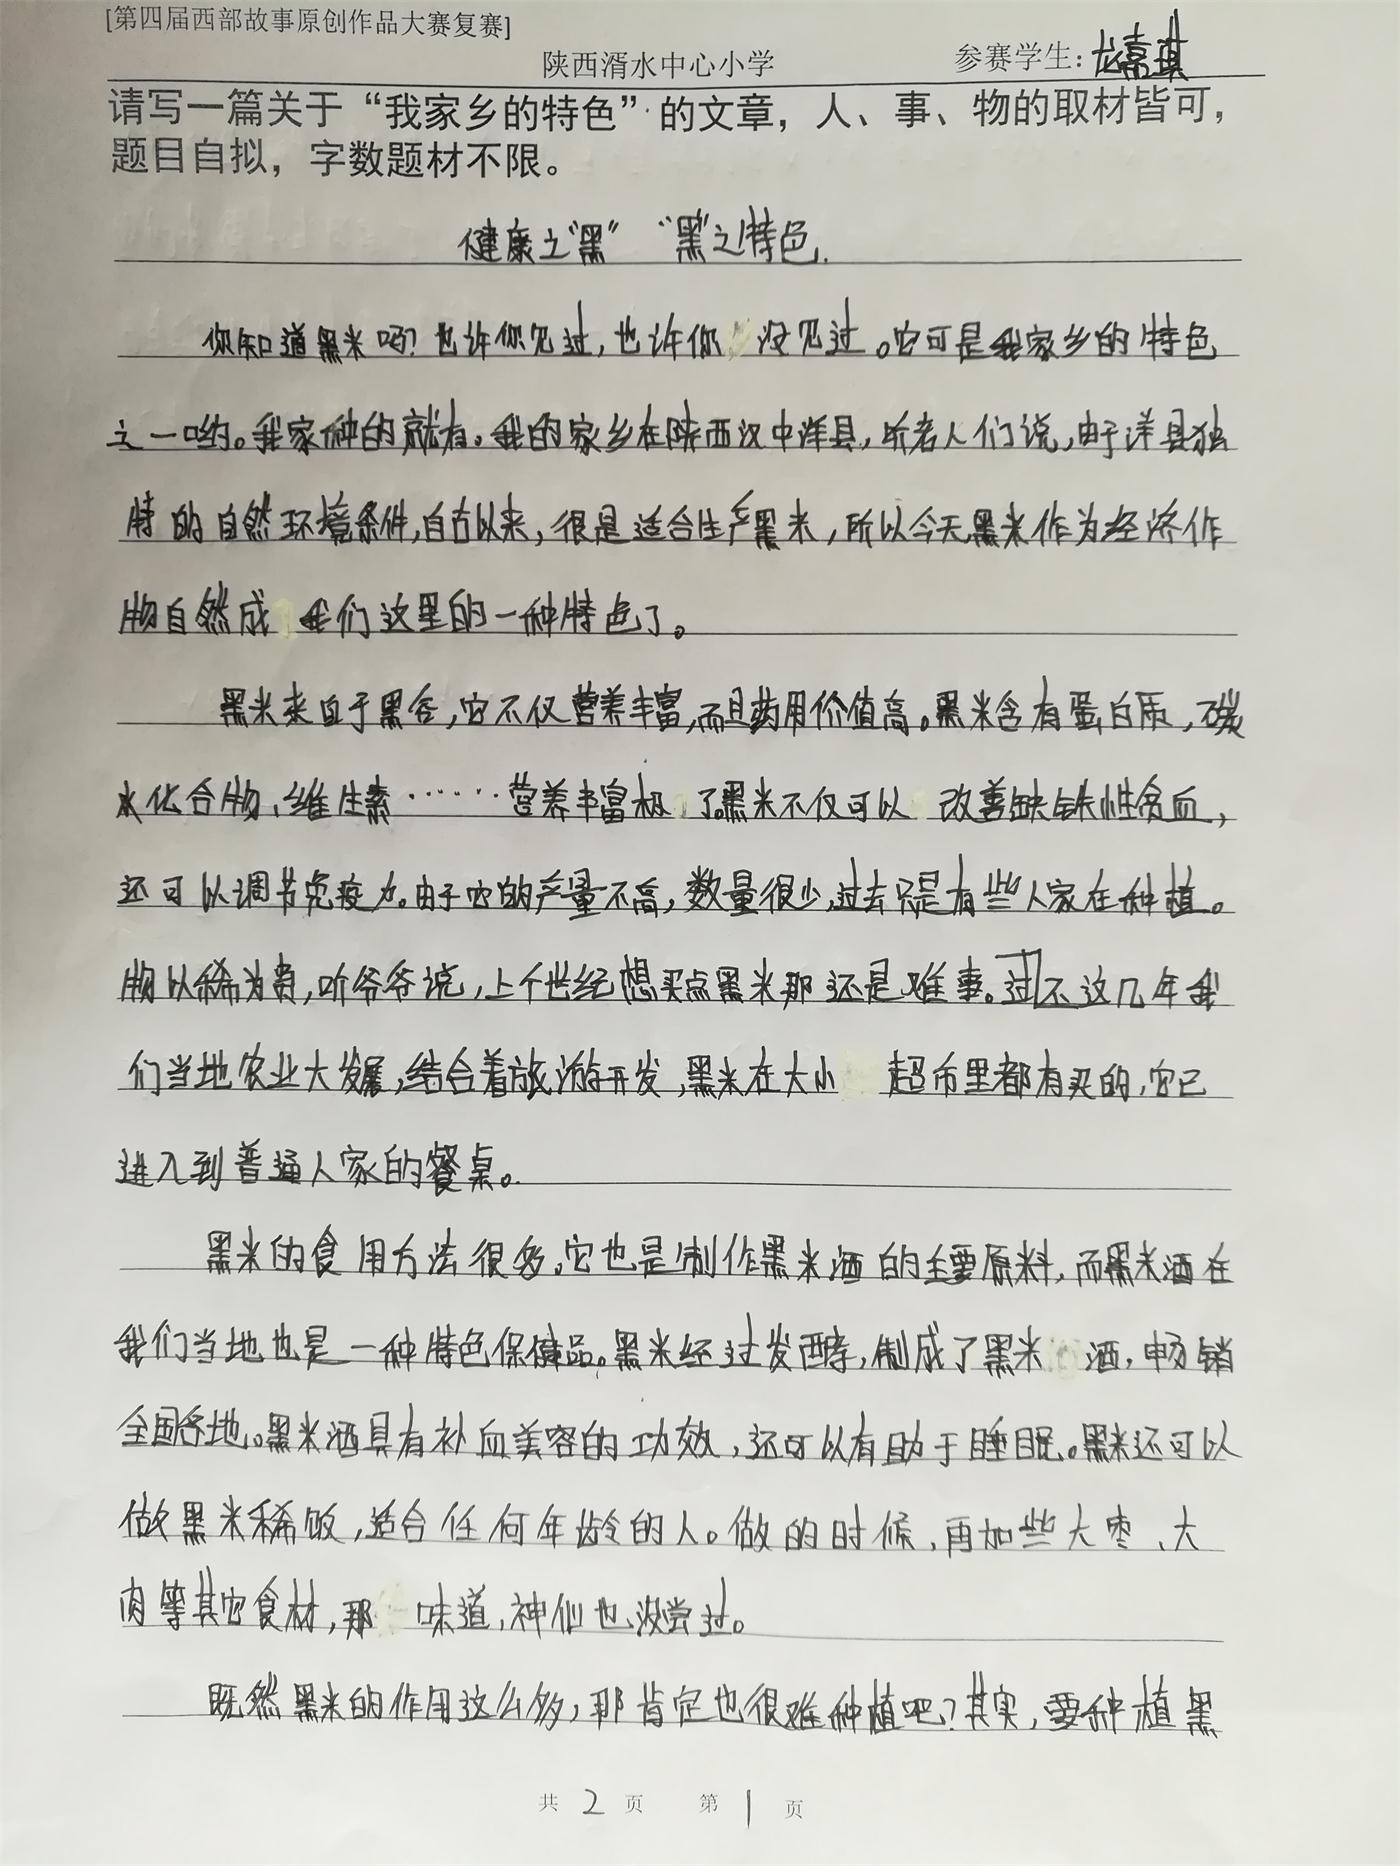 [第四届西部故事原创作品大赛复赛]
陕西湑水中心小学 参赛学生：龙嘉琪
请写一篇关于“我家乡的特色”的文章，人、事、物的取材皆可，
题目自拟，字数题材不限。
健康之“黑” “黑”之特色.
你知道黑米吗？也许你见过，也许你没见过。它可是我家乡的特色
之一哟。我家种的就有。我的家乡在陕西汉中洋县，听老人们说，由于洋县独
特的自然环境条件，自古以来，很是适合生产黑米，所以今天，黑米作为经济作
物自然成我们这里的一种特色了。
黑米来自于黑谷，它不仅营养丰富，而且药用价值高。黑米含有蛋白质，碳
水化合物、维生素……营养丰富极了。黑米不仅可以改善缺铁性贫血，
还可以调节免疫力。由于它的产量不高，数量很少，过去只是有些人家在种植。
物以稀为贵，听爷爷说，上个世纪想买点黑米那还是难事。过不这几年我
们当地农业大发展，结合着旅游开发，黑米在大小超市里都有买的，它已
进入到普通人家的餐桌。
黑米的食用方法很多，它也是制作黑米酒的主要原料，而黑米酒在
我们当地也是一种特色保健品。黑米经过发酵，制成了黑米酒，畅销
全国各地。黑米酒具有补血美容的功效，还可以有助于睡眠。黑米还可以
做黑米稀饭，适合任何年龄的人。做的时候，再加些大枣、大
肉等其它食材，那味道，神仙也没尝过。
既然黑米的作用这么多，那肯定也很难种植吧？其实，要种植黑
共2页 第1页